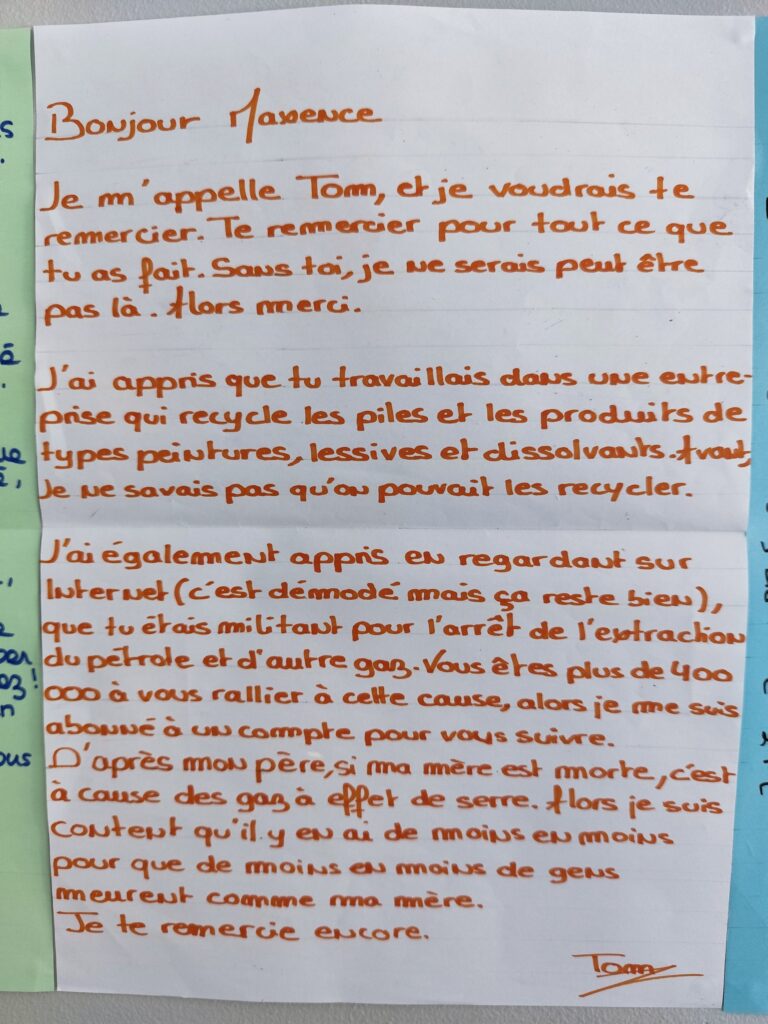 Bonjour Maxence
Je m'appelle Tom, et je voudrais te
remercier. Te remercier pour tout ce que
tu as fait. Sans toi, je ne serais peut être
pas là. Alors merci.
J'ai appris que tu travaillais dans une entre-
prise qui recycle les piles et les produits de
types peintures, lessives et dissolvants. Avant,
Je ne savais pas qu'on pouvait les recycler.
J'ai également appris en regardant sur
Internet (c'est démodé mais ça reste bien),
que tu étais militant pour l'arrêt de l'extraction
du pétrole et d'autre gaz. Vous êtes plus de 400
000 à vous rallier à cette cause, alors je me suis
abonné à un compte pour vous suivre.
D'après mon père, si ma mère est morte, c'est
à cause des gaz à effet de serre. Alors je suis
content qu'il y en ai de moins en moins
pour que de moins en moins de gens
meurent comme ma mère.
Je te remercie encore.
Tom